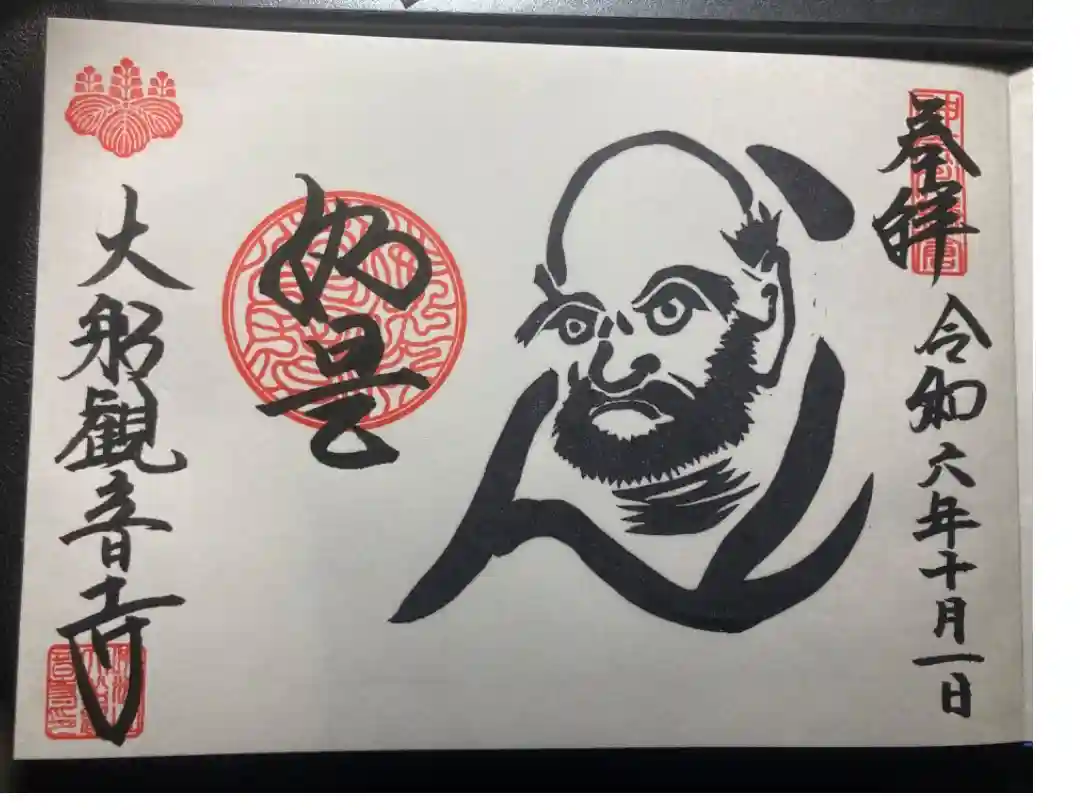 奉拝
令和六年十月一日
如是
大船観音寺